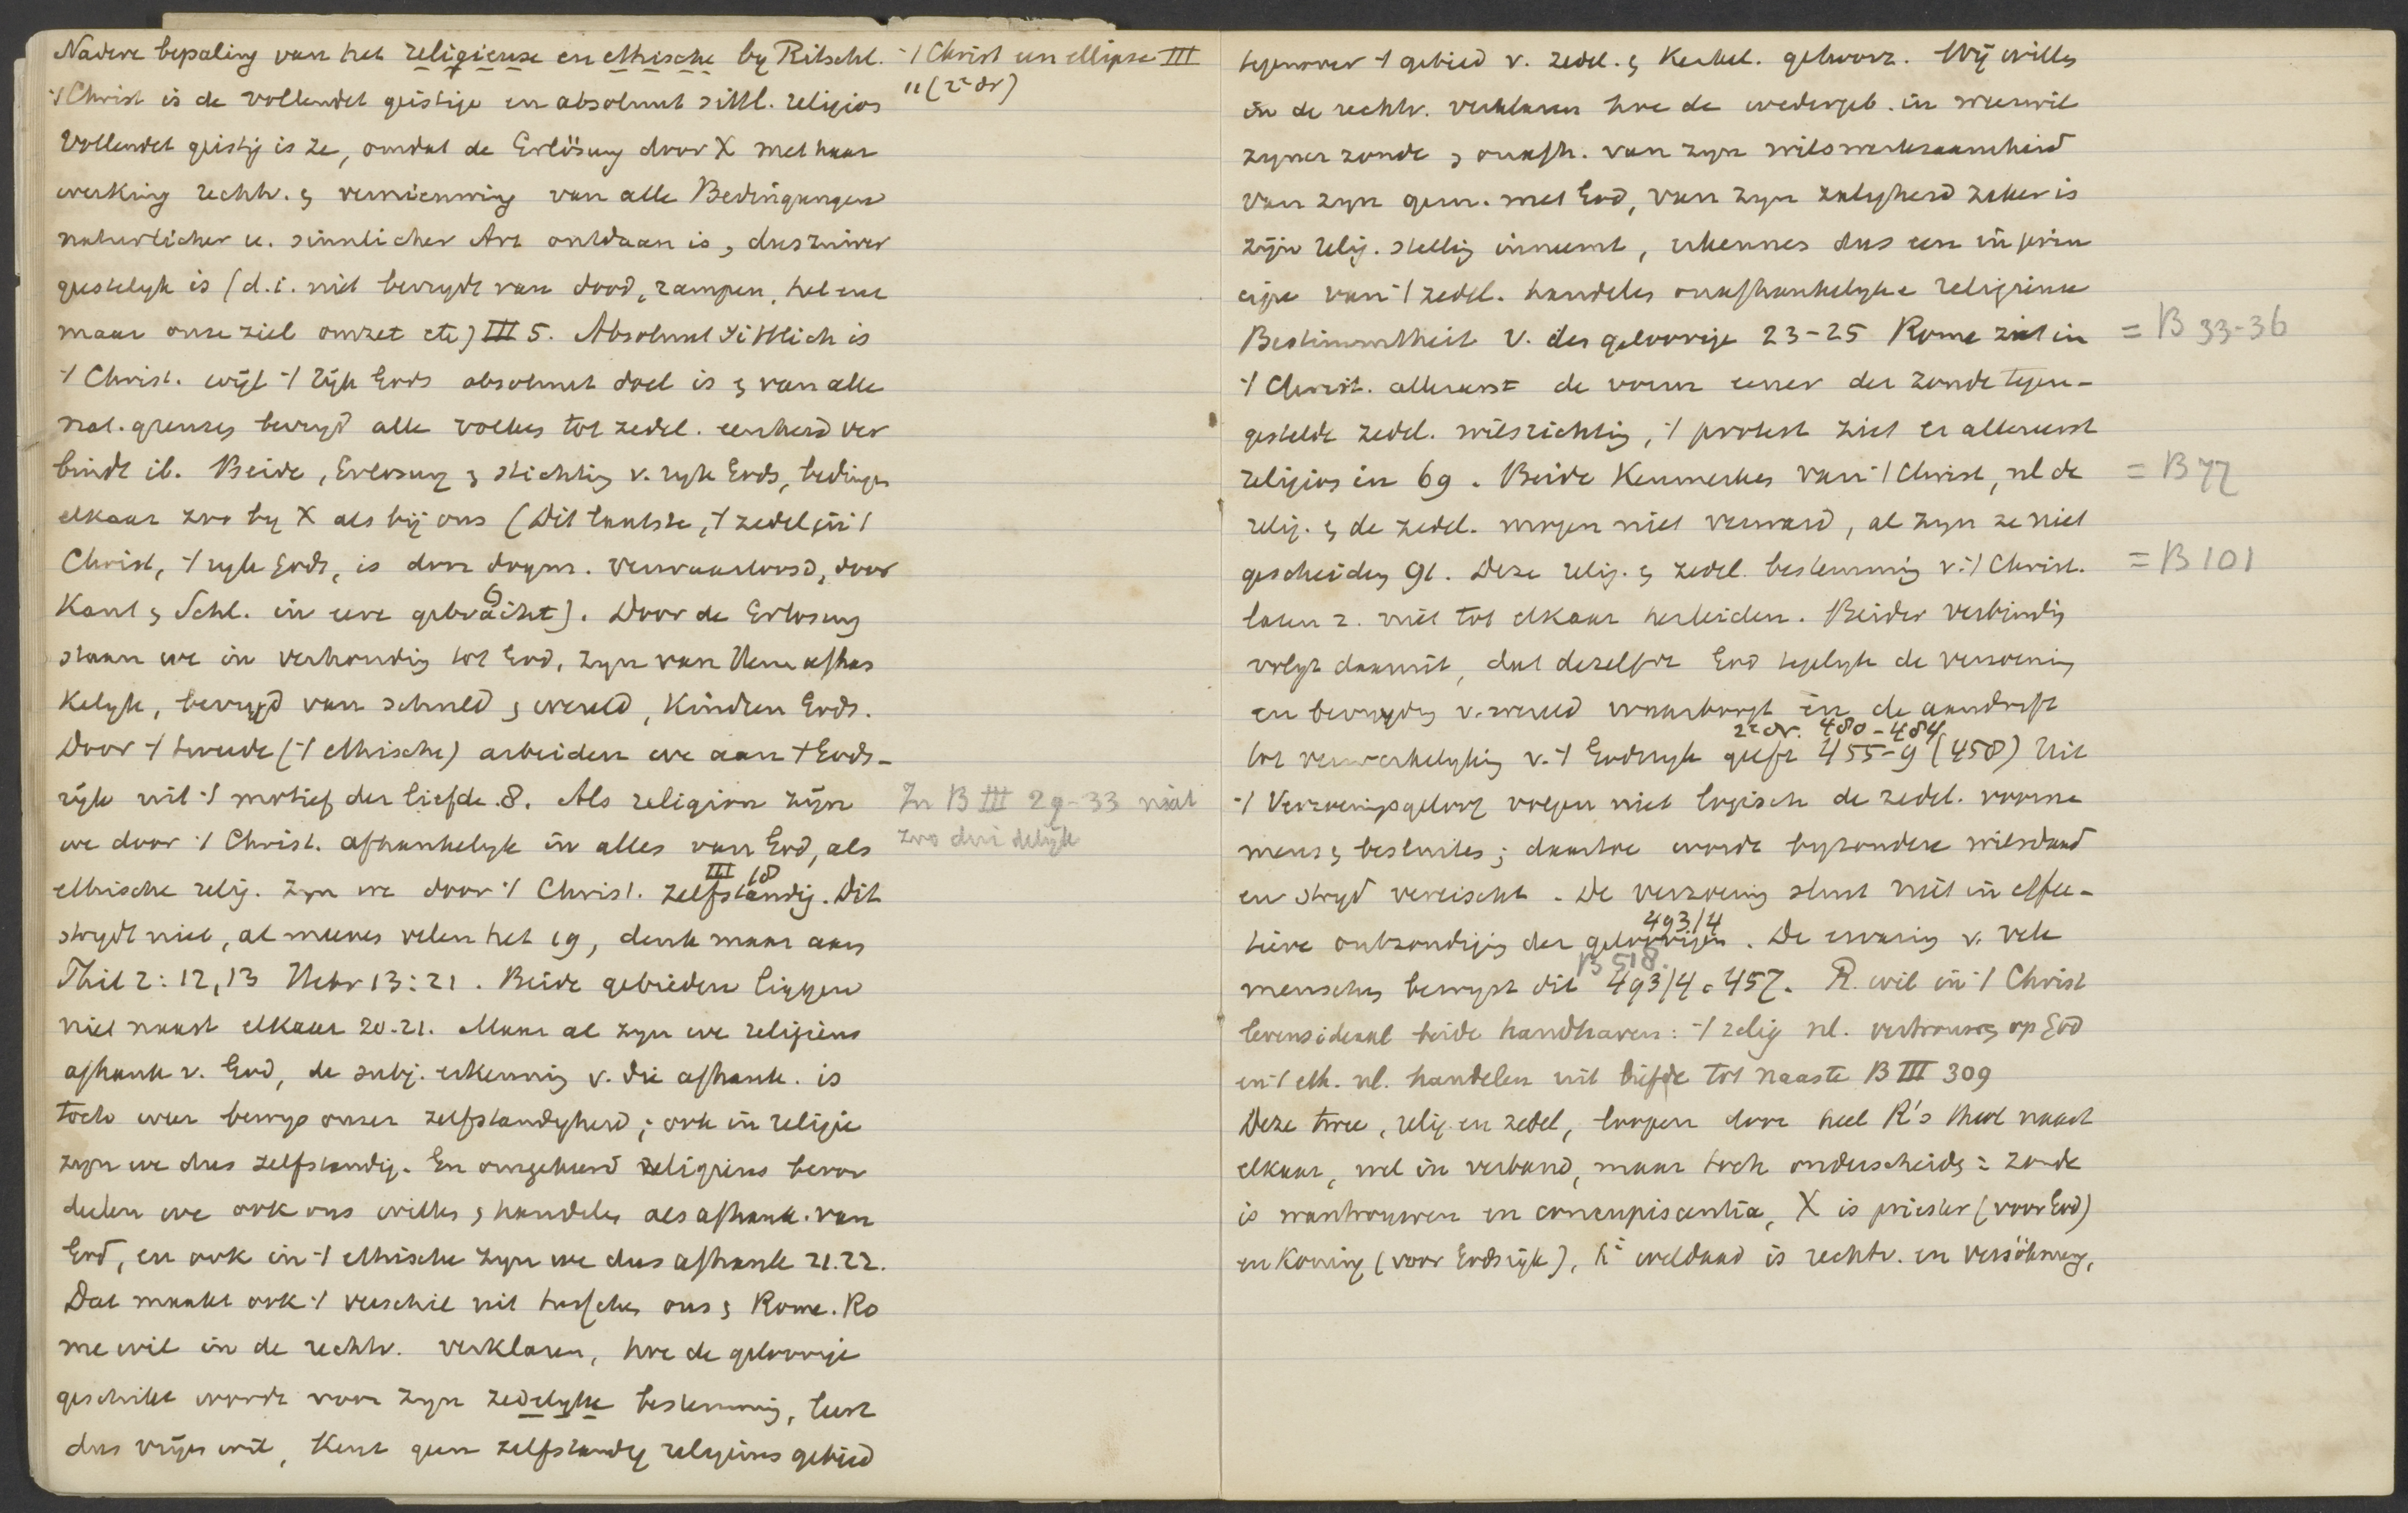 Nadere bepaling van het religieuse en ethische by Ritschl.
't Christ een ellipse III
't Christ is de vollendet geistige en absoluut sittl. religios
11 (2e dr)
Vollendet geistig is ze, omdat de Erlösung door X met haar
werking rechtv. & vernieuwing van alle Bedingungen
naturlicher u. sinnlicher Art ontdaan is, dus zuiver
geestelyk is (d.i. niet bevrydt van dood, rampen, hel enz
maar onze ziel omzet etc) III 5. Absoluut sittlich is
't Christ. wijl 't rijk Gods absoluut doel is & van alle
nat. grenzen bevryd alle volken tot zedel. eenheid ver
bindt ib. Beide, Erlosung & stichting v. ryk Gods, bedingen
elkaar zoo by X als bij ons (Dit laatste, 't zedel in 't
Christ, 't ryk Gods, is door dogm. verwaarloosd, door
Kant & Schl. in eere gebracht). Door de Erlosung
6
staan we in verhouding tot God, zyn van Hem afhan
kelyk, bevryd van schuld & wereld, Kindren Gods.
Door 't tweede ('t ethische) arbeiden we aan 't Gods-
rijk uit 't motief der liefde 8. Als religion zijn
In B III 29-33 niet
zoo duidelijk
we door 't Christ. afhankelyk in alles van God, als
ethische relig. zyn we door 't Christ. zelfstandig. Dit
III 18
strydt niet, al meenen velen het 19, denk maar aan
Phil 2:12,13 Hebr 13:21. Beide gebieden liggen
niet naast elkaar 20-21. Maar al zyn we religieus
afhank v. God, de subj. erkenning v. die afhank. is
toch weer bewys onzer zelfstandigheid; ook in religie
zyn we dus zelfstandig. En omgekeerd religieus beoor
deelen we ook ons willen & handelen als afhank. van
God, en ook in 't ethische zyn we dus afhank 21.22.
Dat maakt ook 't verschil uit tusschen ons & Rome. Ro
me wil in de rechtv. verklaren, hoe de geloovige
geschikt wordt voor zyn zedelyke bestemming, leert
dus vrijen wil, kent geen zelfstandig religieus gebied
tegenover 't gebied v. zedel. & Kerkel. gehoorz. Wij willen
in de rechtv. verklaren hoe de wedergeb. in weerwil
zyner zonde & onafh. van zyn wilswerkzaamheid
van zyn gem. met God, van zyn zaligheid zeker is
zijn relig. stelling inneemt, erkennen dus een in prin
cipe van 't zedel. handelen onafhankelyke religieuse
Bestimmtheit v. den geloovige 23-25 Rome ziet in
= B 33-36
't Christ. allereerst de vorm eener der zonde tegen-
gestelde zedel. wilsrichting, 't protest ziet er allereerst
religios in 69. Beide Kenmerken van 't Christ, nl de
= B 77
relig. & de zedel. mogen niet verward, al zyn ze niet
gescheiden 91. Deze relig. & zedel. bestemming v. 't Christ.
= B 101
laten z. niet tot elkaar herleiden. Beider verbinding
volgt daaruit, dat dezelfde God tegelyk de verzoening
en bevryding v. wereld waarborgt en de aandrift
2e dr. 480-484
tot verwerkelyking v. 't Godsryk geeft 455-9 (458) Uit
't Verzoeningsgeloof volgen niet logisch de zedel. voorne
mens & besluiten; daartoe wordt byzondere wilsdaad
en stryd vereischt. De verzoening sluit niet in effec-
tieve ontzondiging der geloovigen. De ervaring v. vele
493/4
menschen bewyst dit 493/4 c 457. R. wil in 't Christ
B 518.
levensideaal beide handhaven: 't relig nl. vertrouwen op God
en 't eth. nl. handelen uit liefde tot naaste B III 309
Deze twee, relig en zedel, loopen door heel R's theol naast
elkaar, wel in verband, maar toch onderscheiden: zonde
is wantrouwen en concupiscentia, X is priester (voor God)
en Koning (voor Godsrijk), weldaad is rechtv. en versöhnung,